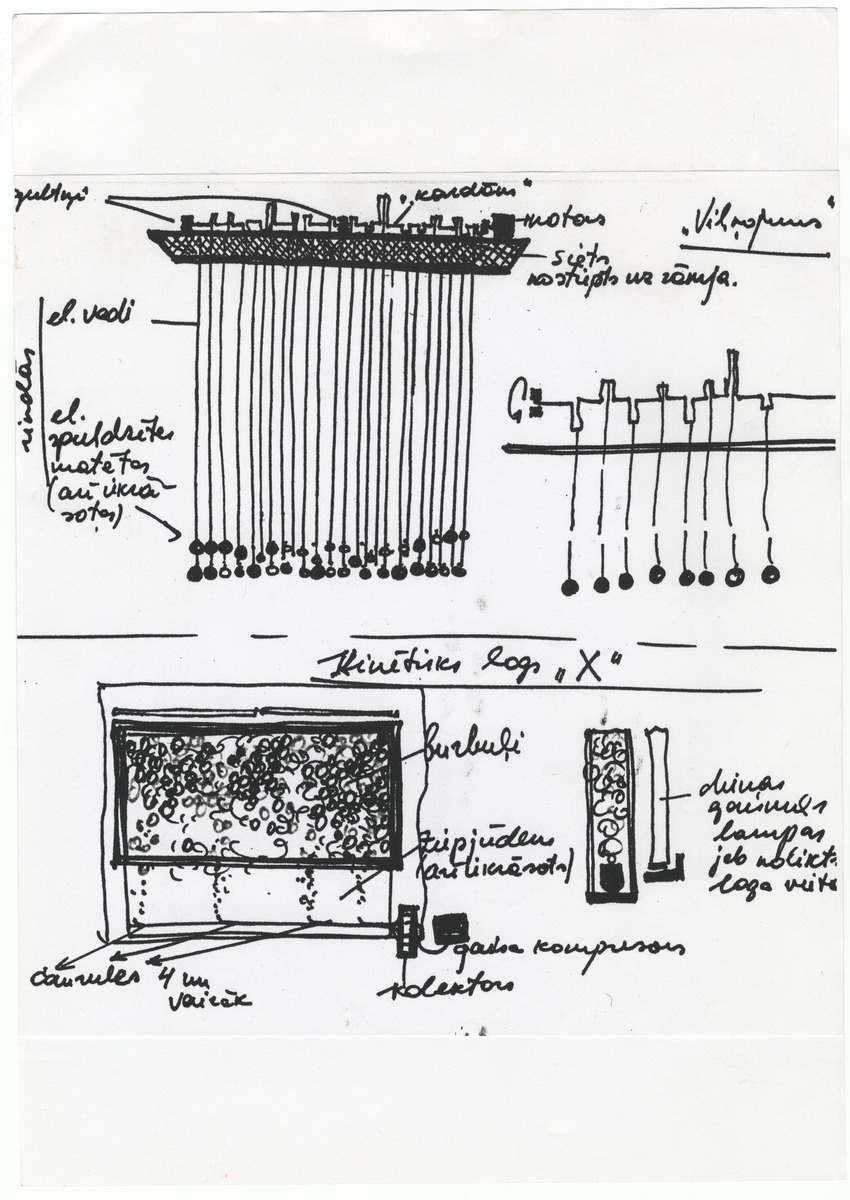 gultņi
„kardāns“
motors
„Viļņojums“
siets
nostiepts uz rāmja.
el. vadi
rindās
el.
spuldzītes
matētas
(arī ikrā-
sotas)
Kinētisks logs „X“
burbuļi
ziepjūdens
(arī ikrāsots)
dienas
gaismas
lampas
jeb nolikts
loga vietā
gaisa kompresors
kolektors
caurules 4 un
vairāk